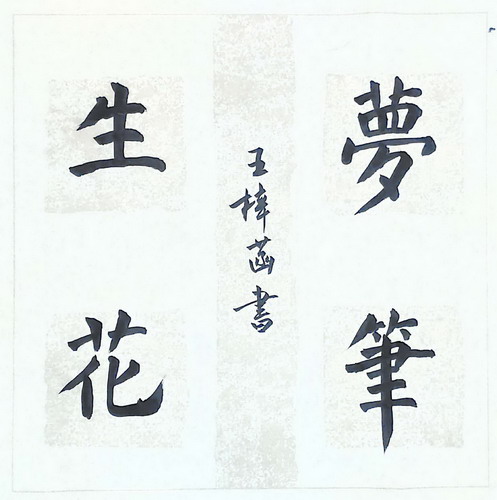 夢筆
生花
王梓菡書